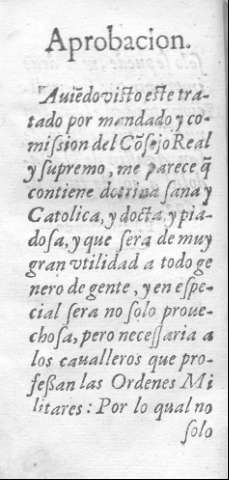 Aprobacion.
Auiẽdo visto este tra-
tado por mandado y co-
mission del Cõsejo Real
y supremo, me parece q̃
contiene dotrina sana y
Catolica, y docta, y pia-
dosa, y que sera de muy
gran vtilidad a todo ge
nero de gente, y en espe-
cial sera no solo proue-
chosa, pero necessaria a
los caualleros que pro-
fessan las Ordenes Mi
litares: Por lo qual no
solo